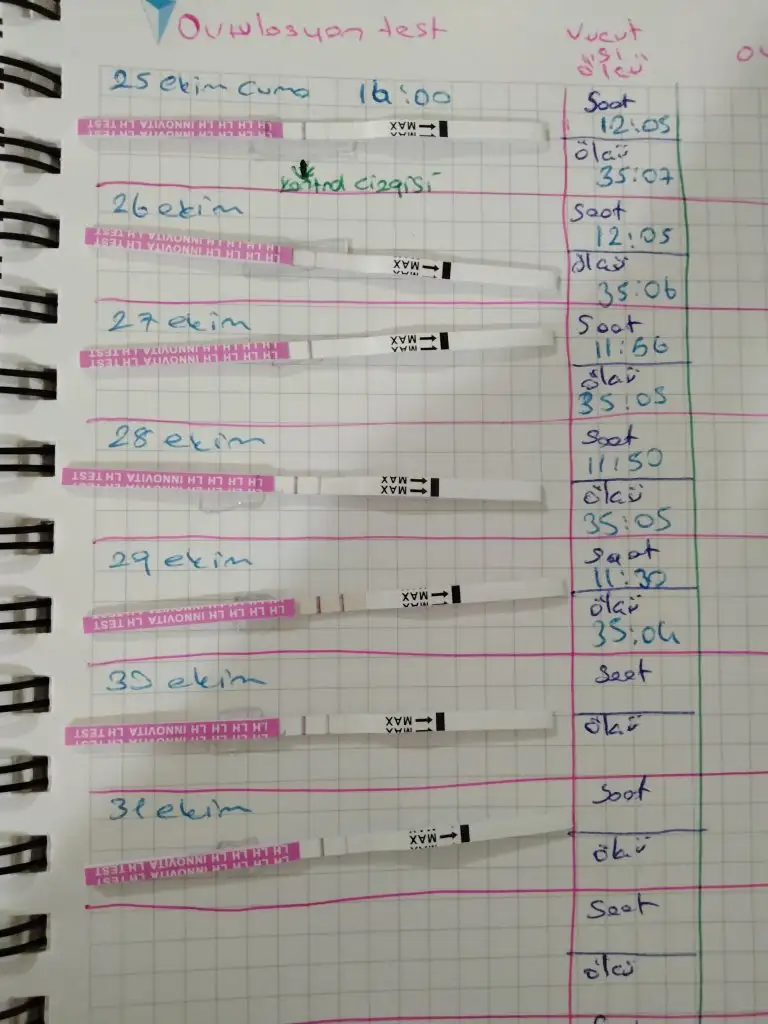 Ovulosyon test
Vucut
ısı
ölçü
25 ekim Cuma 16:00
Saat
12:05
LH TEST LH INNOVITA LH LH LH LH
MAX
kontrol çizgisi
ölçü
35:07
26 ekim
Saat
12:05
LH TEST LH INNOVITA LH LH LH LH
MAX
ölçü
35:06
27 ekim
Saat
11:56
LH TEST LH INNOVITA LH LH LH LH
MAX
ölçü
35:05
28 ekim
Saat
11:50
LH TEST LH INNOVITA LH LH LH LH
MAX
MAX
ölçü
35:05
29 ekim
Saat
11:30
LH TEST LH INNOVITA LH LH LH LH
MAX
ölçü
35:04
30 ekim
Saat
LH TEST LH INNOVITA LH LH LH LH
MAX
ölçü
31 ekim
Saat
LH TEST LH INNOVITA LH LH LH LH
MAX
ölçü
Saat
ölçü